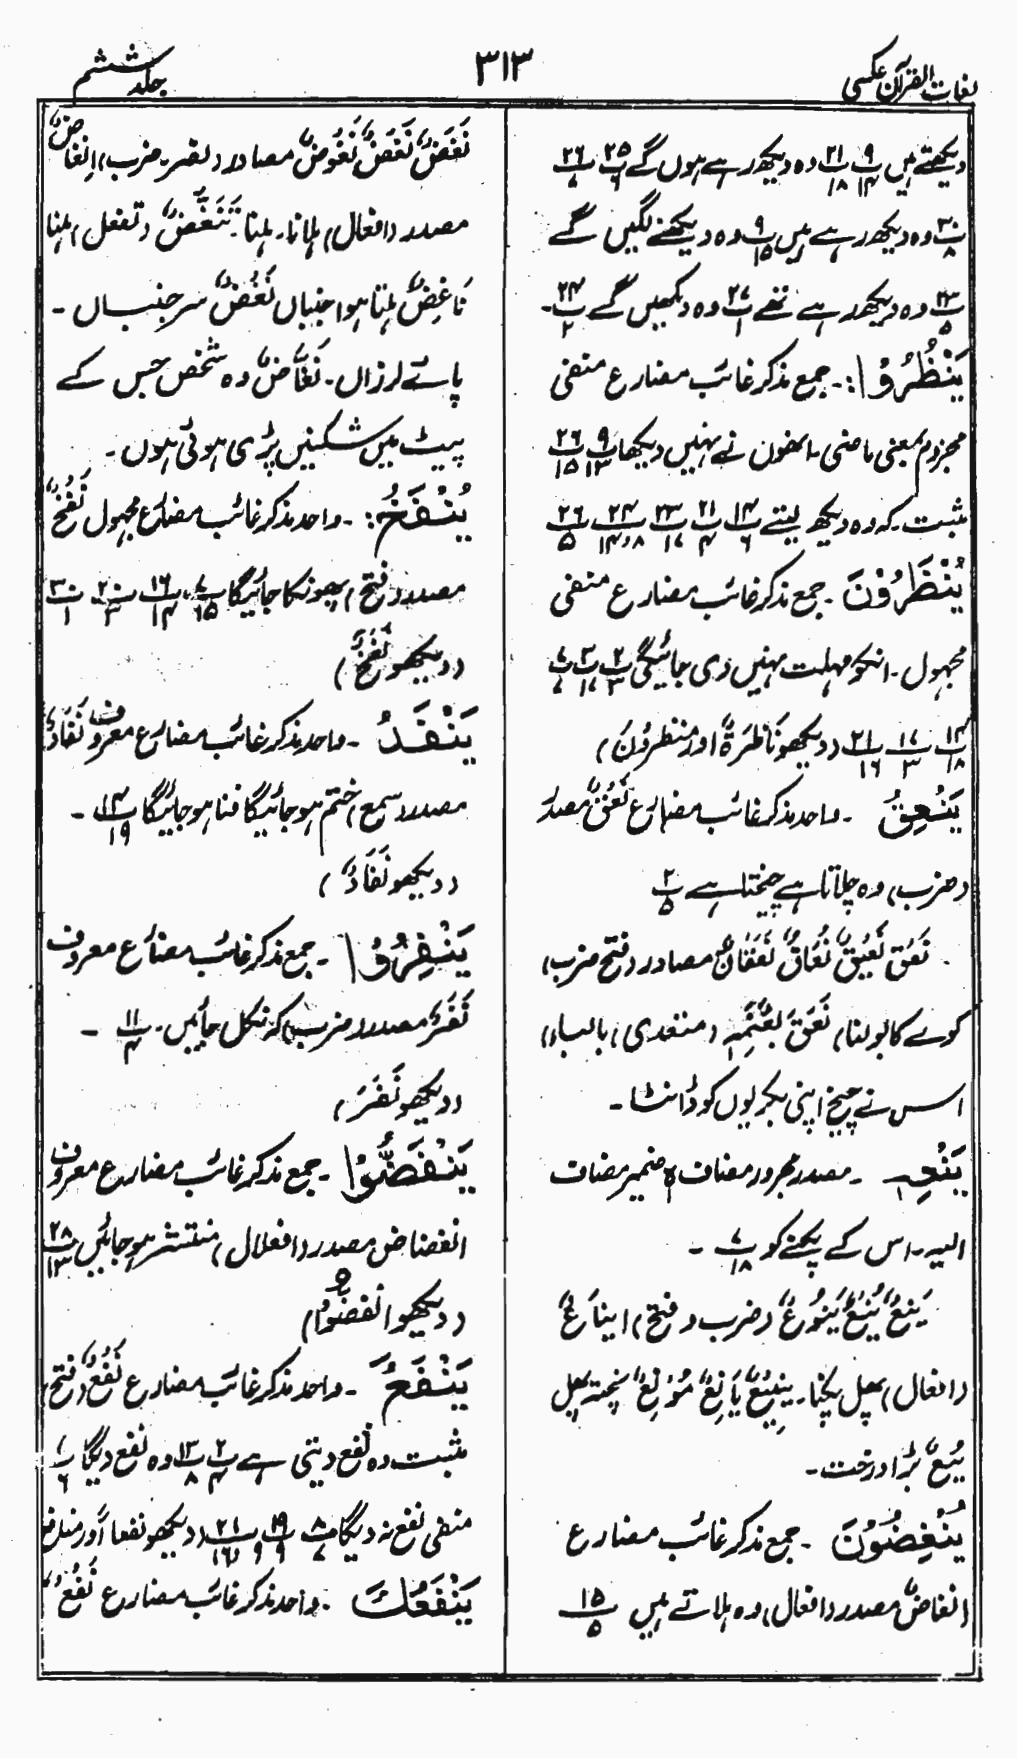 لغات القرآن عکسی
۳۱۳
جلد ششم
دیکھتے ہیں ۹/۱۴ پ ۲۱/۱۸ پ وہ دیکھ رہے ہوں گے ۲۵/۶ پ ۲۶/۷ پ
۳۰/۸ پ وہ دیکھ رہے ہیں ۹/۱۵ پ وہ دیکھنے لگیں گے
۲۳/۵ پ وہ دیکھ رہے تھے ۲۷/۱ پ وہ دیکھیں گے ۲۴/۲ پ۔
یَنْظُرُوْا:۔ جمع مذکر غائب مضارع منفی
مجزوم بمعنی ماضی۔ انھوں نے نہیں دیکھا ۹/۱۳ پ ۲۶/۱۵ پ
مثبت۔ کہ وہ دیکھ لیتے ۱۴/۶ پ ۲۱/۴ پ ۲۳/۱۷ پ ۲۴/۸،۱۴ پ ۲۶/۵ پ
یُنْظَرُوْنَ۔ جمع مذکر غائب مضارع منفی
مجہول۔ انکو مہلت نہیں دی جائیگی ۲/۳ پ ۳/۱۷ پ ۷/۷ پ
۱۴/۱۸ پ ۱۷/۳ پ ۲۱/۱۶ پ (دیکھو نَاظِرَۃٌ اور منظرون)
یَنْعِقُ۔ واحد مذکر غائب مضارع نَعْقٌ مصدر
(ضرب) وہ چلاتا ہے چیختا ہے ۲/۵ پ
نَعْق نَعِیْقٌ نُعَاقٌ نَعَقَانٌ مصادر (فتح ضرب)
کوے کا بولنا، نَعَقَ بِغَنَمِہٖ (متعدی) بالباء)
اس نے چیخ اپنی بکریوں کو ڈانٹا۔
یَنْعِہٖ۔ مصدر مجرور مضاف ہٖ ضمیر مضاف
الیہ۔ اس کے پکنے کو ۷/۱۸ پ۔
یَنْعٌ یُنْعٌ یَنُوْعٌ (ضرب و فتح) ایناعٌ
(افعال) پھل پکنا۔ یَنِیْعٌ یَانِعٌ مُوْنِعٌ پختہ پھل
یُنُعٌ بڑا درخت۔
یُنْغِضُوْنَ۔ جمع مذکر غائب مضارع
انغاضٌ مصدر (افعال) وہ ہلاتے ہیں ۱۵/۵ پ
نَغَضٌ نَغْضٌ نُغُوْضٌ مصادر (نصر۔ ضرب) اِنغاضٌ
مصدر (افعال) ہلانا۔ ہلنا۔ تَنَغُّضٌ (تفعل) ہلنا
نَاغِضٌ ہلتا ہوا جنباں نَغُضٌ سر جنباں۔
پائے لرزاں۔ نَغَّاضٌ وہ شخص جس کے
پیٹ میں شکنیں پڑی ہوئی ہوں۔
یُنْفَخُ:۔ واحد مذکر غائب مضارع مجہول نَفْخٌ
مصدر (فتح) پھونکا جائیگا ۷/۱۵ پ ۱۶/۱۴ پ ۲۰/۳ پ ۳۰/۱ پ
(دیکھو نَفْخٌ)
یَنْفَدُ۔ واحد مذکر غائب مضارع معروف نَفَادٌ
مصدر (سمع) ختم ہو جائیگا فنا ہو جائیگا ۱۴/۱۹ پ۔
(دیکھو نَفَادٌ)
یَنْفِرُوْا۔ جمع مذکر غائب مضارع معروف
نَفْرٌ مصدر (ضرب) کہ نکل جائیں۔ ۱۱/۴ پ۔
(دیکھو نَفَرَ)
یَنْفَضُّوْا۔ جمع مذکر غائب مضارع معروف
انفضاض مصدر (افعلال) منتشر ہو جائیں ۲۸/۱۳ پ
(دیکھو انفضوا)
یَنْفَعُ۔ واحد مذکر غائب مضارع نَفْعٌ (فتح)
مثبت وہ نفع دیتی ہے ۲/۴ پ ۱۳/۸ پ وہ نفع دیگا ۷/۶ پ
منفی نفع نہ دیگا ۸/۷ پ ۱۹/۹ پ ۲۱/۹،۱۶ پ (دیکھو نفعا اور منافع
یَنْفَعُكَ۔ واحد مذکر غائب مضارع نَفْعٌ